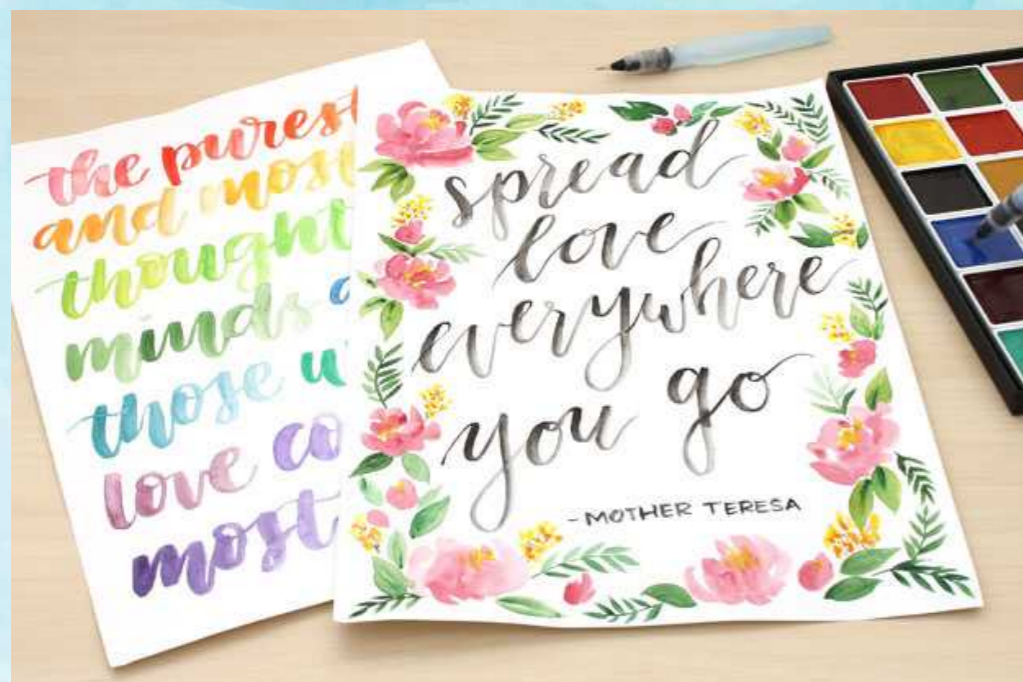 the purest
and most
thought
minds
those
love
most
spread
love
everywhere
you go
- MOTHER TERESA